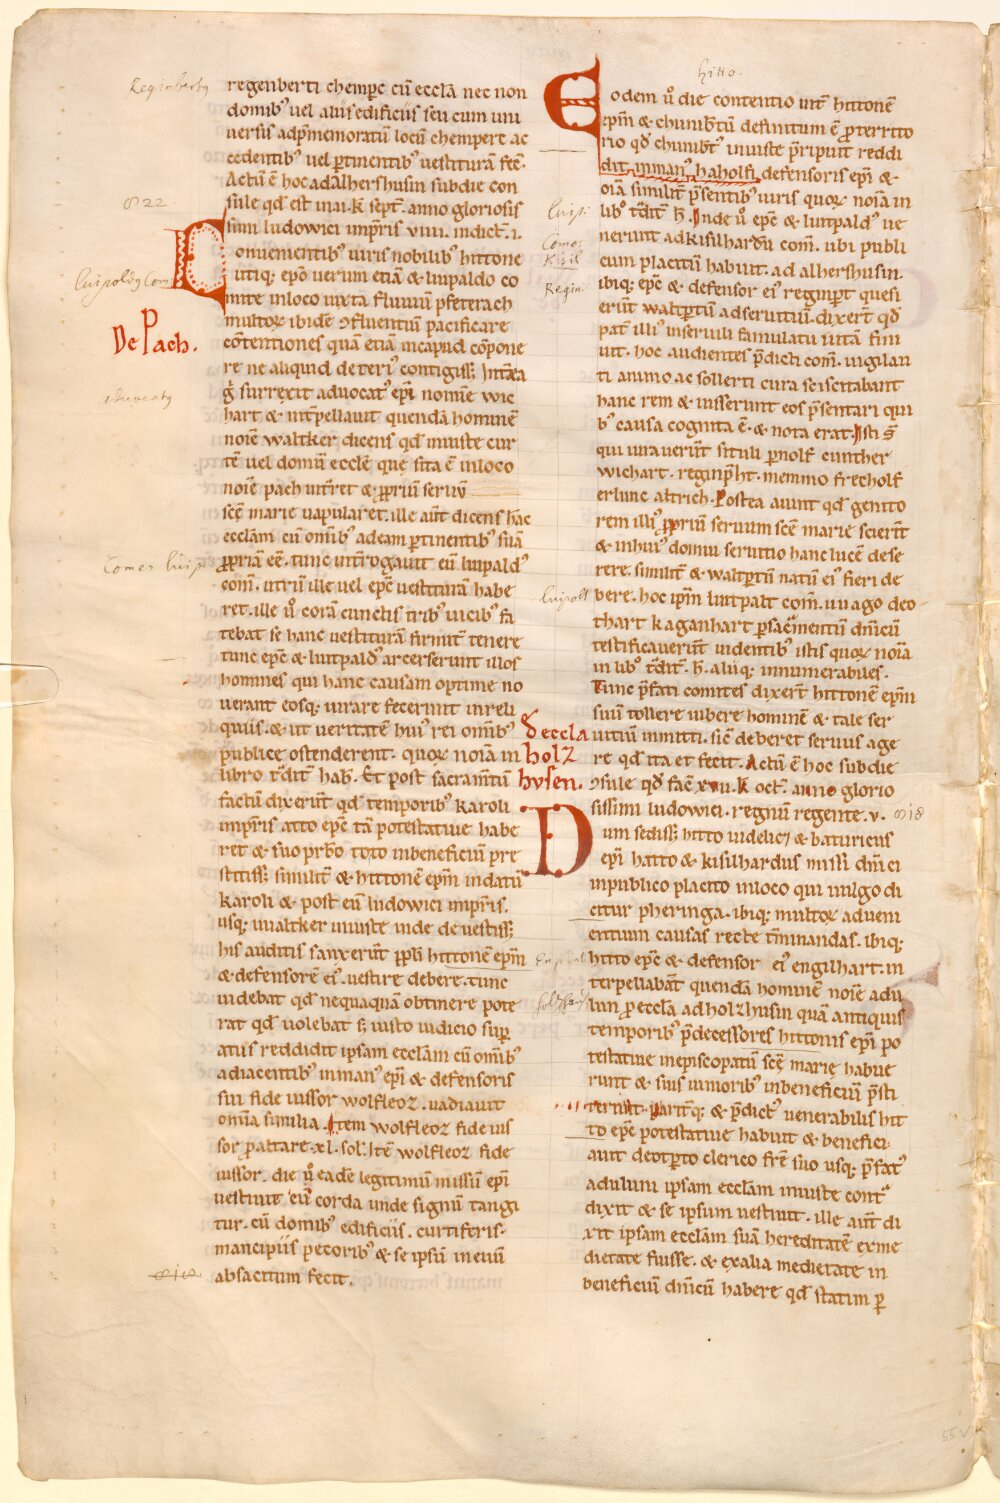 regenberti chempẽ cũ ecclã nec non
domibꝰ vel aliis edificiis seu cum uni
versis adp̱memoratũ locũ chempere ac
cedentibꝰ vel ꝑtinentibꝰ vestiturã fec̃.
Actũ ẽ hoc adãlhershusin subdie con
sule qd̃ est .k̃ sept̃. anno gloriosis
simi ludowici imp̃ris viiii. indict̃. i.
De Pach.
Convenientibꝰ viris nobilibꝰ hittone
utiq; ep̃o verum etiã & liupaldo co
mite inloco iuxta fluuiũ pfeterach
multoꝝ ibidẽ ꝯfluentiũ pacificare
cõtentiones quã etiã incapud cõpone
re ne aliquid deteriꝰ contigiss;
g̃ surrexit advocatꝰ ep̃i nomine wic
hart & int̃pellavit quendã hominẽ
noiẽ waltker dicens qd̃ iniuste cur
tẽ vel domũ ecclẽ que sita ẽ inloco
noiẽ pach int̃ret & ꝓpriũ servũ
sc̃ẽ marie vapularet. ille aũt dicens hãc
ecclãm cũ om̃ibꝰ adeam ꝑtinentibꝰ suã
ꝓpriã eẽ. tunc int̃rogavit eũ liupaldꝰ
com̃. utrũ ille vel ep̃c vestiturã habe
ret. ille ṽ corã cunctis tribꝰ vicibꝰ fa
tebat se hanc vestiturã firmit̃ tenere
tunc ep̃c & liutpaldꝰ arcerserunt illos
homines qui hanc causam optime no
verant eosq; iurare fecerunt inreli
quiis. & ut veritatẽ huiꝰ rei om̃ibꝰ
publice ostenderent. quoꝝ noĩa in
libro t̃dit̃ hab̃. Et post sacram̃tũ
factũ dixerũt qd̃ temporibꝰ karoli
imp̃ris atto ep̃c tã potestative habe
ret & suo p̃rbo toto inbeneficiũ pre
stitiss; similit̃ & hittonẽ ep̃m indatũ
karoli & post eũ ludowici imp̃ris.
usq; waltker iniuste inde devestiss;
his auditis sanxerũt pp̃li hittonẽ ep̃m
& defensorẽ eiꝰ vestire debere. tunc
videbat qd̃ nequaquã obtinere pote
rat qd̃ volebat s; iusto iudicio suꝑ
atus reddidit ipsam ecclãm cũ om̃ibꝰ
adiacentibꝰ inmanꝰ ep̃i & defensoris
sui fide iussor wolfleoz. vadiavit
omĩa similia. Item wolfleoz fideius
sor ꝑaltare. xl. sol. Itẽ wolfleoz fide
iussor. die ṽ eadẽ legitimũ missũ ep̃i
vestivit cũ corda unde signũ tangi
tur. cũ domibꝰ edificiis. curtiferis.
mancipiis pecoribꝰ & se ipsũ inevũ
absacitum fecit.
hitto.
Eodem ṽ die contentio int̃ hittonẽ
ep̃m & chunib̃tũ definitum ẽ ꝓterrito
rio qd̃ chunib̃tꝰ iniuste p̃ripuit reddi
dit inmanꝰ haholfi defensoris ep̃i &
om̃ia similit̃ p̃sentibꝰ viris quoꝝ noĩa in
libꝰ t̃dit̃ h̃. Inde ṽ ep̃c & luitpaldꝰ ve
nerunt adkisilhardũ com̃. ubi publi
cum placitũ habuit. ad alhershusin.
ibiq; ep̃c & defensor eiꝰ reginp̃t quesi
erũt waltp̃tũ adservitiũ. dixer̃t qd̃
pat̃ illiꝰ inservili famulatu vitã fini
vit. hoc audientes p̃dicti com̃. vigilan
ti animo ac sollerti cura sciscitabant
hanc rem & iusserunt eos p̃sentari qui
bꝰ causa cognita ẽ. & nota erat. Isti s̃
qui iuraverũt situli p̱nolf cunther
wichart. reginp̃ht. memmo frecholf
erlunc altrich. Postea aiunt qd̃ genito
rem illiꝰ ꝓpriũ servum sc̃ẽ marie scier̃t
& inhuiꝰ domu servitio hanc lucẽ dese
rere. similit̃ & waltp̃tũ natũ eiꝰ fieri de
bere. hoc ip̃m liutpalt com̃. uuago deo
thart kaganhart ꝑsacᵃm̃entũ dñicũ
testificaverũt videntibꝰ istis quoꝝ noĩa
in libꝰ t̃dit̃. h̃. aliiq; innumerabiles.
Tunc p̃fati comites dixer̃t hittonẽ ep̃m
suũ tollere iubere hominẽ & tale ser
vitiũ inmitti. sicẽ deberet servus age
re qd̃ ita et fecit. Actũ ẽ hoc subdie
ꝯsule qd̃ fac̃ xvii. k̃ oct̃. anno glorio
sissimi ludowici. regnũ regente. v.
ꝺ eccla
holz
husen.
Dum sediss; hitto videlic; & baturicus
ep̃i hatto & kisilhardus missi dñici
inpublico placito inloco qui vulgo di
citur pheringa. ibiq; multoꝝ adveni
entium causas recte t̃minandas. ibiq;
hitto ep̃c & defensor eiꝰ engilhart. in
terpellabañt quendã hominẽ noiẽ adu
lun ꝓ ecclã adholzhusin quã antiquis
temporibꝰ p̃decessores hittonis ep̃i po
testative inepiscopatũ sc̃ẽ marie habue
runt & suis iunioribꝰ inbeneficiũ p̃sti
terunt. parit̃q; & p̃dictꝰ venerabilis hit
to ep̃c potestative habuit & benefici
avit deotp̃to clerico fr̃e suo usq; p̃fatꝰ
adulum ipsam ecclãm iniuste contᵃ
dixit & se ipsum vestivit. ille aũt di
xit ipsam ecclãm suã hereditatẽ exme
dietate fuisse. & exalia medietate in
beneficiũ dñicũ habere qd̃ statim ꝑ